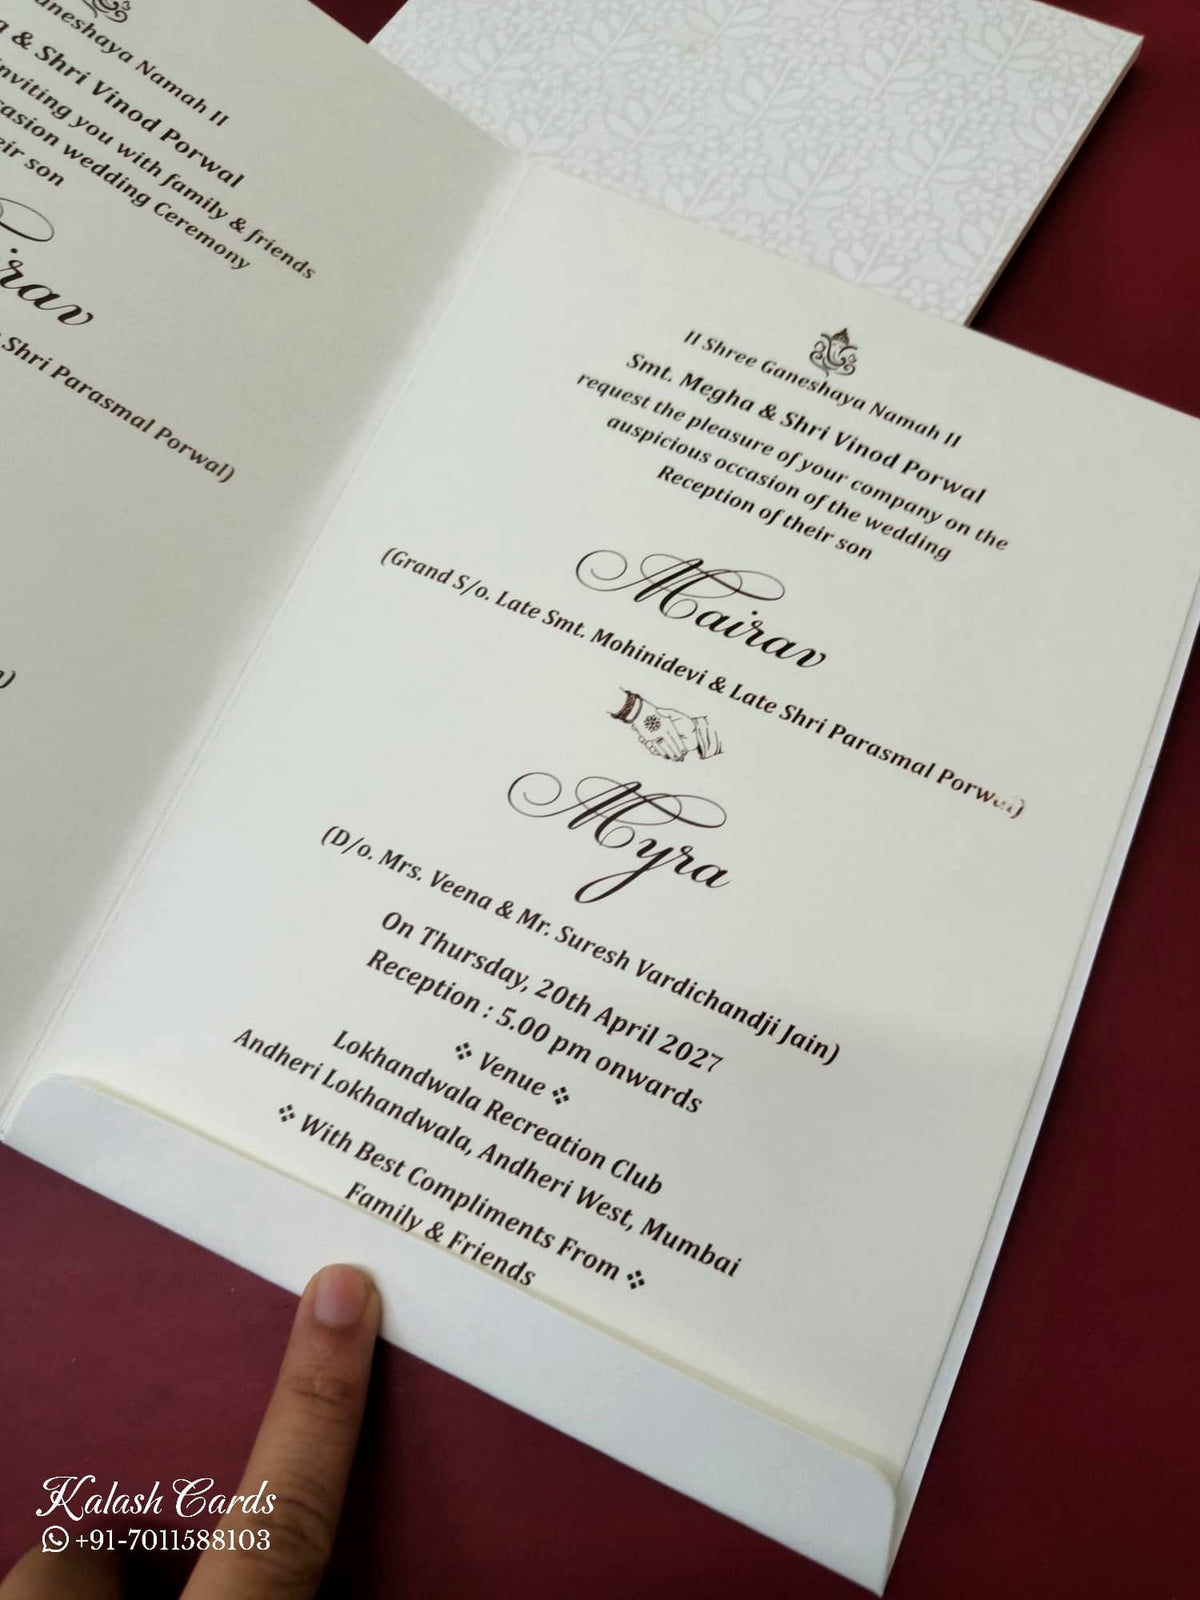 Ganeshaya Namah II
& Shri Vinod Porwal
inviting you with family & friends
wedding Ceremony
their son
Shri Parasmal Porwal)
II Shree Ganeshaya Namah II
Smt. Megha & Shri Vinod Porwal
request the pleasure of your company on the
auspicious occasion of the wedding
Reception of their son
Mairav
(Grand S/o. Late Smt. Mohinidevi & Late Shri Parasmal Porwal)
Myra
(D/o. Mrs. Veena & Mr. Suresh Vardichandji Jain)
On Thursday, 20th April 2027
Reception : 5.00 pm onwards
❖ Venue ❖
Lokhandwala Recreation Club
Andheri Lokhandwala, Andheri West, Mumbai
❖ With Best Compliments From ❖
Family & Friends
Kalash Cards
+91-7011588103